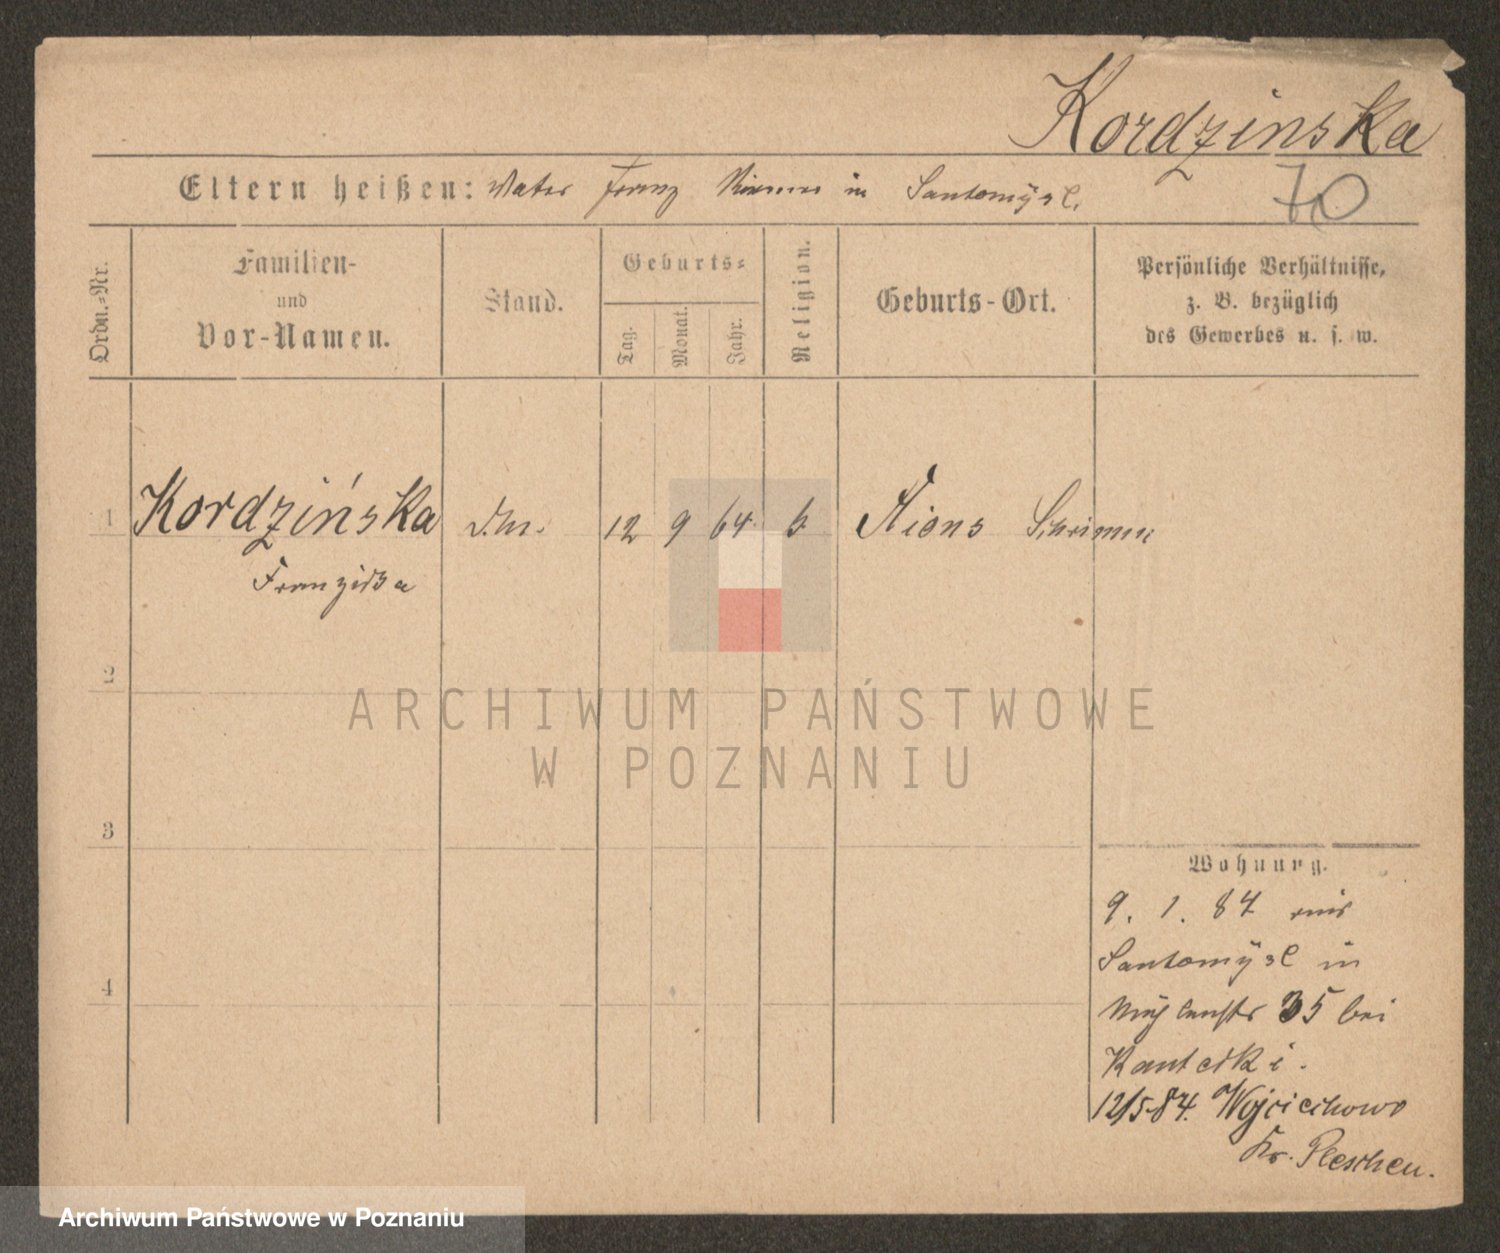 Kordzinska
Eltern heißen: Vater Franz in Santomÿsl.
70
Ordn.-Nr.
Familien-
und
Vor-Namen.
Stand.
Geburts-
Tag.
Monat.
Jahr.
Religion.
Geburts-Ort.
Persönliche Verhältnisse,
z. B. bezüglich
des Gewerbes u. s. w.
1 Kordzińska 12 9 64 Schrimm
Franziska
2
ARCHIWUM PAŃSTWOWE
W POZNANIU
3
4
Wohnung.
9. 1. 84 aus
Santomÿsl in
Mühlenstr 35 bei
12/5 84. Wojciechowo
Kr. Pleschen.
Archiwum Państwowe w Poznaniu